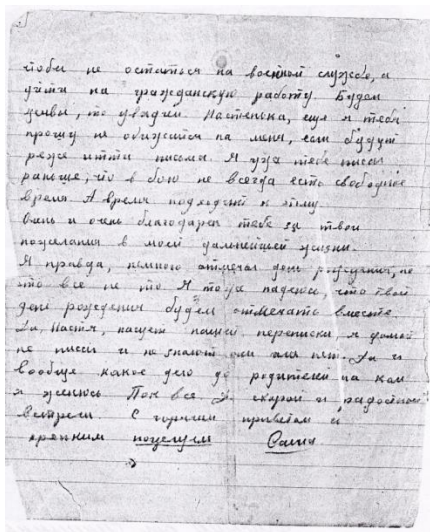 чтобы не остаться на военной службе, а
уйти на гражданскую работу. Будем
живы, то увидим. Настенька, ещё я тебя
прошу не обижайся на меня, если будут
реже итти письма. Я уже тебе писал
раньше, что в бою не всегда есть свободное
время. А время подходит к этому.
Очень и очень благодарен тебе за твои
пожелания в моей дальнейшей жизни.
Я правда, немного отмечал день рождения, но
это все не то. Я тогда надеюсь, что твой
день рождения будем отмечать вместе.
Да, Настя, насчет нашей переписки, я домой
не писал и не знают они или нет. Да и
вообще какое дело до родителей на ком
я женюсь. Пок все. До скорой и радостной
встречи. С горячим приветом и
крепким поцелуем Саша